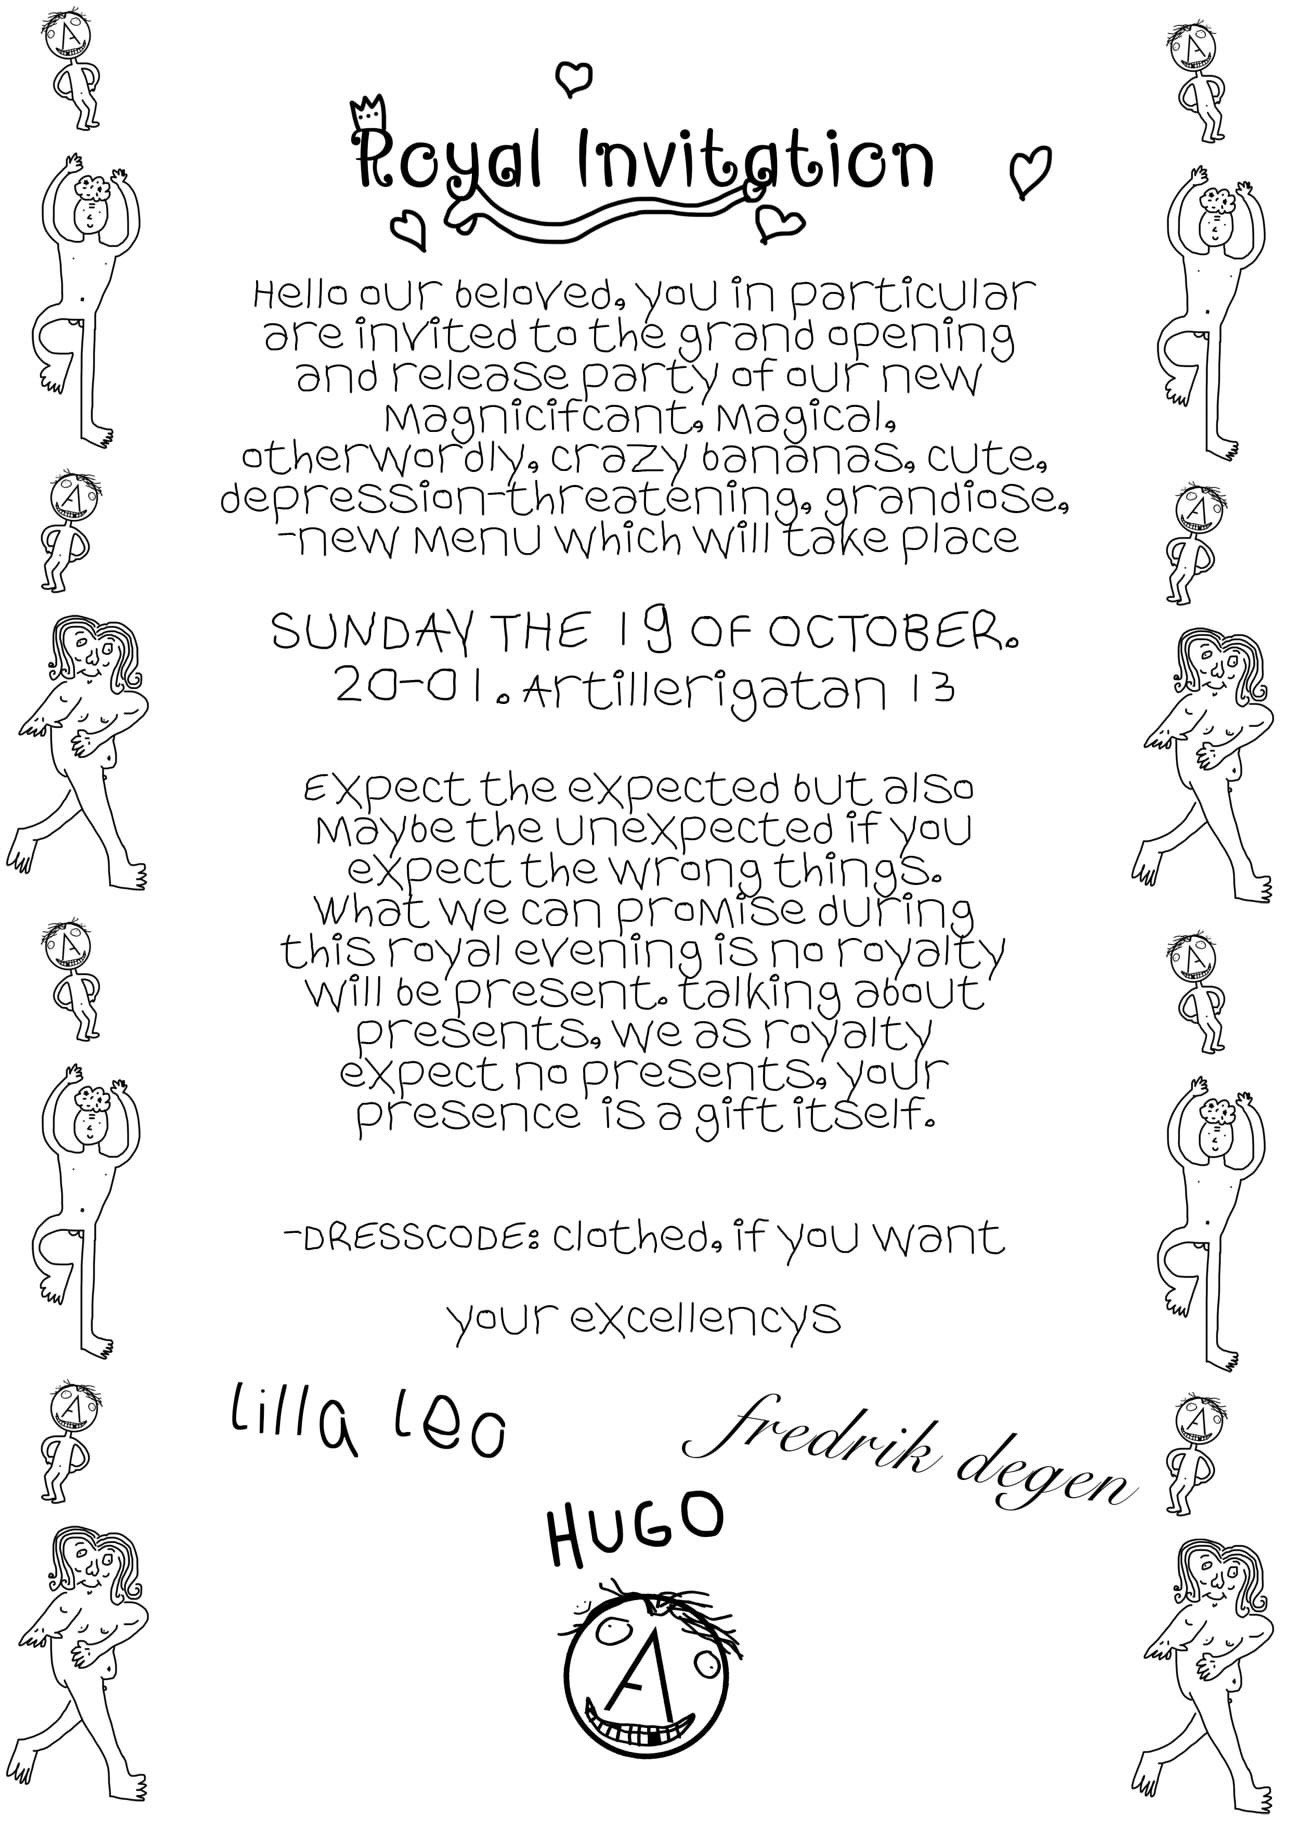 Royal Invitation
Hello our beloved, you in particular
are invited to the grand opening
and release party of our new
Magnicifcant, Magical,
otherwordly, crazy bananas, cute,
depression-threatening, grandiose,
-new Menu which will take place
SUNDAY THE 19 OF OCTOBER.
20-01. Artillerigatan 13
Expect the expected but also
Maybe the unexpected if you
expect the wrong things.
What we can proMise during
this royal evening is no royalty
will be present. talking about
presents, we as royalty
expect no presents, your
presence is a gift itself.
-DRESSCODE: clothed, if you want
your excellencys
lilla leo
fredrik degen
HUGO
A